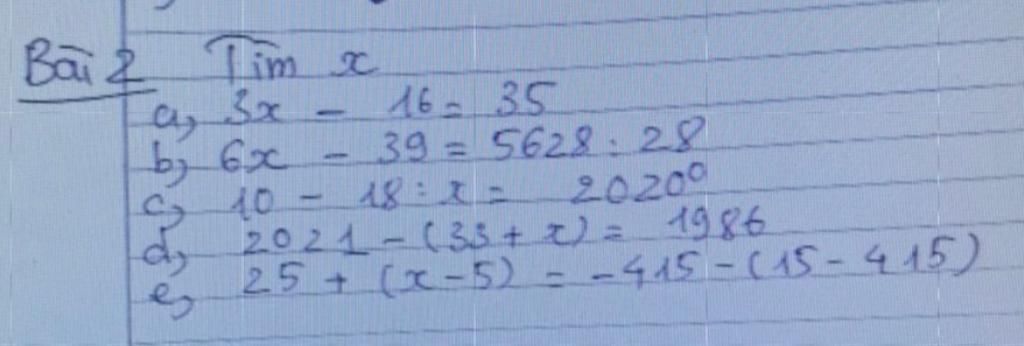 Bài 2 Tìm x
a, 3x - 16 = 35
b, 6x - 39 = 5628 : 28
c, 10 - 18 : x = 2020⁰
d, 2021 - (33 + x) = 1986
e, 25 + (x - 5) = -415 - (15 - 415)